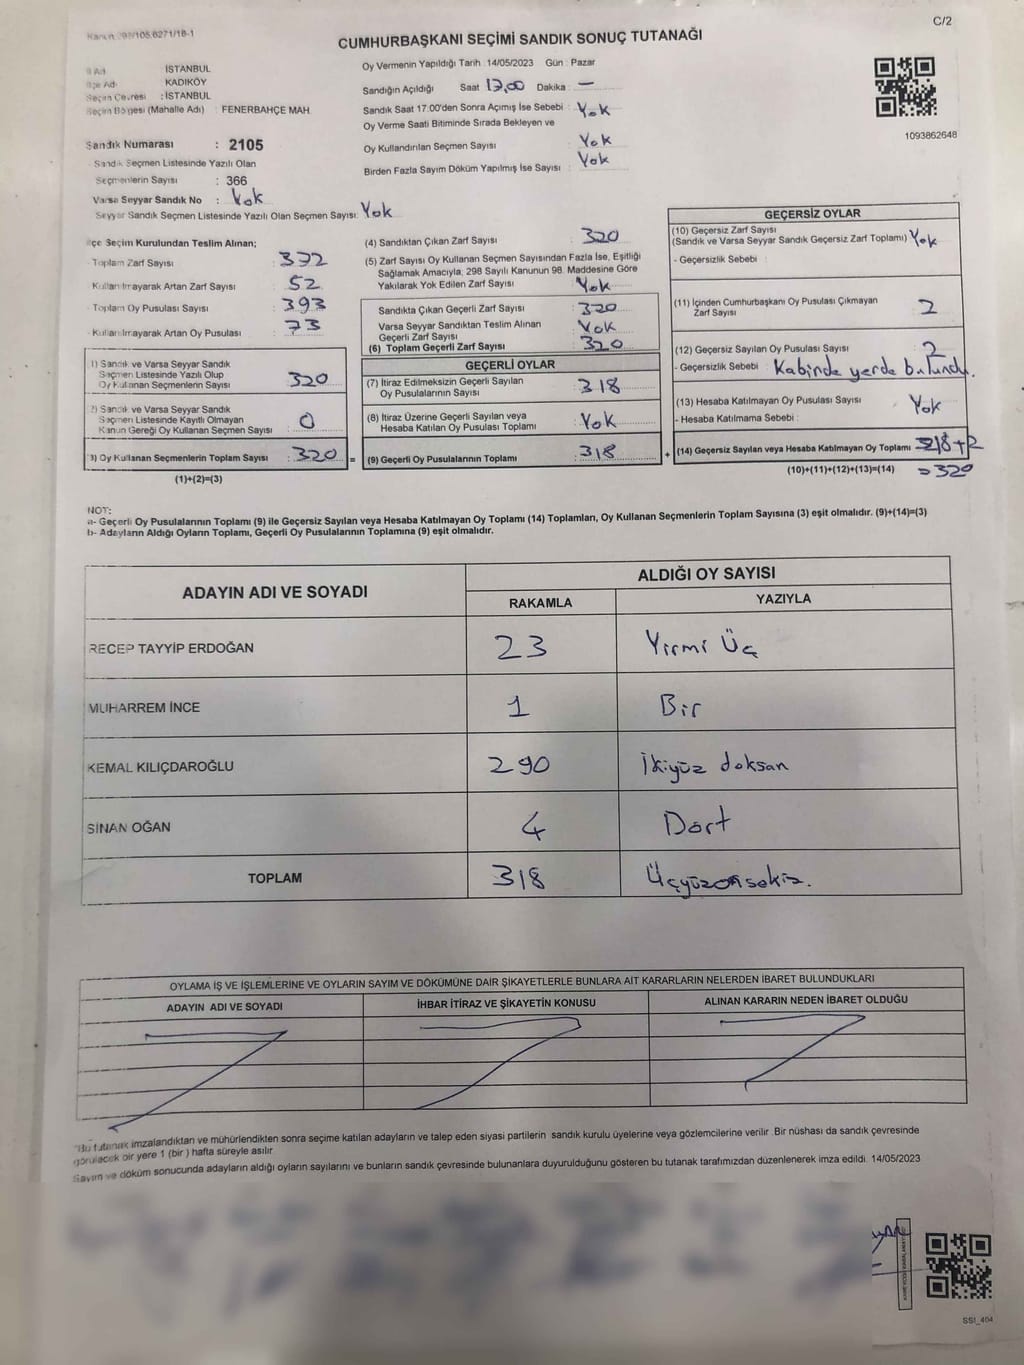 C/2
Kanun 298/105.6271/18-1
CUMHURBAŞKANI SEÇİMİ SANDIK SONUÇ TUTANAĞI
İl Adı İSTANBUL
İlçe Adı KADIKÖY
Seçim Çevresi : İSTANBUL
Seçim Bölgesi (Mahalle Adı) : FENERBAHÇE MAH.
Sandık Numarası : 2105
Sandık Seçmen Listesinde Yazılı Olan
Seçmenlerin Sayısı : 366
Varsa Seyyar Sandık No : Yok
Seyyar Sandık Seçmen Listesinde Yazılı Olan Seçmen Sayısı: Yok
Oy Vermenin Yapıldığı Tarih :14/05/2023 Gün : Pazar
Sandığın Açıldığı Saat 17,00 Dakika : —
Sandık Saat 17.00'den Sonra Açımış İse Sebebi : Yok
Oy Verme Saati Bitiminde Sırada Bekleyen ve
Oy Kullandırılan Seçmen Sayısı : Yok
Birden Fazla Sayım Döküm Yapılmış İse Sayısı : Yok
1093862648
İlçe Seçim Kurulundan Teslim Alınan;
Toplam Zarf Sayısı : 372
Kullanılmayarak Artan Zarf Sayısı : 52
Toplam Oy Pusulası Sayısı : 393
Kullanılmayarak Artan Oy Pusulası : 73
1) Sandık ve Varsa Seyyar Sandık
Seçmen Listesinde Yazılı Olup
Oy Kullanan Seçmenlerin Sayısı : 320
2) Sandık ve Varsa Seyyar Sandık
Seçmen Listesinde Kayıtlı Olmayan
Kanun Gereği Oy Kullanan Seçmen Sayısı : 0
3) Oy Kullanan Seçmenlerin Toplam Sayısı : 320 =
(1)+(2)=(3)
(4) Sandıktan Çıkan Zarf Sayısı : 320
(5) Zarf Sayısı Oy Kullanan Seçmen Sayısından Fazla İse, Eşitliği
Sağlamak Amacıyla, 298 Sayılı Kanunun 98. Maddesine Göre
Yakılarak Yok Edilen Zarf Sayısı : Yok
Sandıkta Çıkan Geçerli Zarf Sayısı : 320
Varsa Seyyar Sandıktan Teslim Alınan
Geçerli Zarf Sayısı : Yok
(6) Toplam Geçerli Zarf Sayısı : 320
GEÇERLİ OYLAR
(7) İtiraz Edilmeksizin Geçerli Sayılan
Oy Pusulasının Sayısı : 318
(8) İtiraz Üzerine Geçerli Sayılan veya
Hesaba Katılan Oy Pusulası Toplamı : Yok
(9) Geçerli Oy Pusulalarının Toplamı : 318 +
GEÇERSİZ OYLAR
(10) Geçersiz Zarf Sayısı
(Sandık ve Varsa Seyyar Sandık Geçersiz Zarf Toplamı) Yok
- Geçersizlik Sebebi :
(11) İçinden Cumhurbaşkanı Oy Pusulası Çıkmayan
Zarf Sayısı : 2
(12) Geçersiz Sayılan Oy Pusulası Sayısı : 2
- Geçersizlik Sebebi : Kabinde yerde bulundu.
(13) Hesaba Katılmayan Oy Pusulası Sayısı : Yok
- Hesaba Katılmama Sebebi :
(14) Geçersiz Sayılan veya Hesaba Katılmayan Oy Toplamı : 318+2
(10)+(11)+(12)+(13)=(14) =320
NOT:
a- Geçerli Oy Pusulalarının Toplamı (9) ile Geçersiz Sayılan veya Hesaba Katılmayan Oy Toplamı (14) Toplamları, Oy Kullanan Seçmenlerin Toplam Sayısına (3) eşit olmalıdır. (9)+(14)=(3)
b- Adayların Aldığı Oyların Toplamı, Geçerli Oy Pusulalarının Toplamına (9) eşit olmalıdır.
ADAYIN ADI VE SOYADI ALDIĞI OY SAYISI
RAKAMLA YAZIYLA
RECEP TAYYİP ERDOĞAN 23 Yirmi Üç
MUHARREM İNCE 1 Bir
KEMAL KILIÇDAROĞLU 290 İkiyüz doksan
SİNAN OĞAN 4 Dört
TOPLAM 318 Üçyüzonsekiz.
OYLAMA İŞ VE İŞLEMLERİNE VE OYLARIN SAYIM VE DÖKÜMÜNE DAİR ŞİKAYETLERLE BUNLARA AİT KARARLARIN NELERDEN İBARET BULUNDUKLARI
ADAYIN ADI VE SOYADI İHBAR İTİRAZ VE ŞİKAYETİN KONUSU ALINAN KARARIN NEDEN İBARET OLDUĞU
"Bu tutanak imzalandıktan ve mühürlendikten sonra seçime katılan adayların ve talep eden siyasi partilerin sandık kurulu üyelerine veya gözlemcilerine verilir. Bir nüshası da sandık çevresinde
görülecek bir yere 1 (bir ) hafta süreyle asılır.
Sayım ve döküm sonucunda adayların aldığı oyların sayılarını ve bunların sandık çevresinde bulunanlara duyurulduğunu gösteren bu tutanak tarafımızdan düzenlenerek imza edildi. 14/05/2023
SSI_404